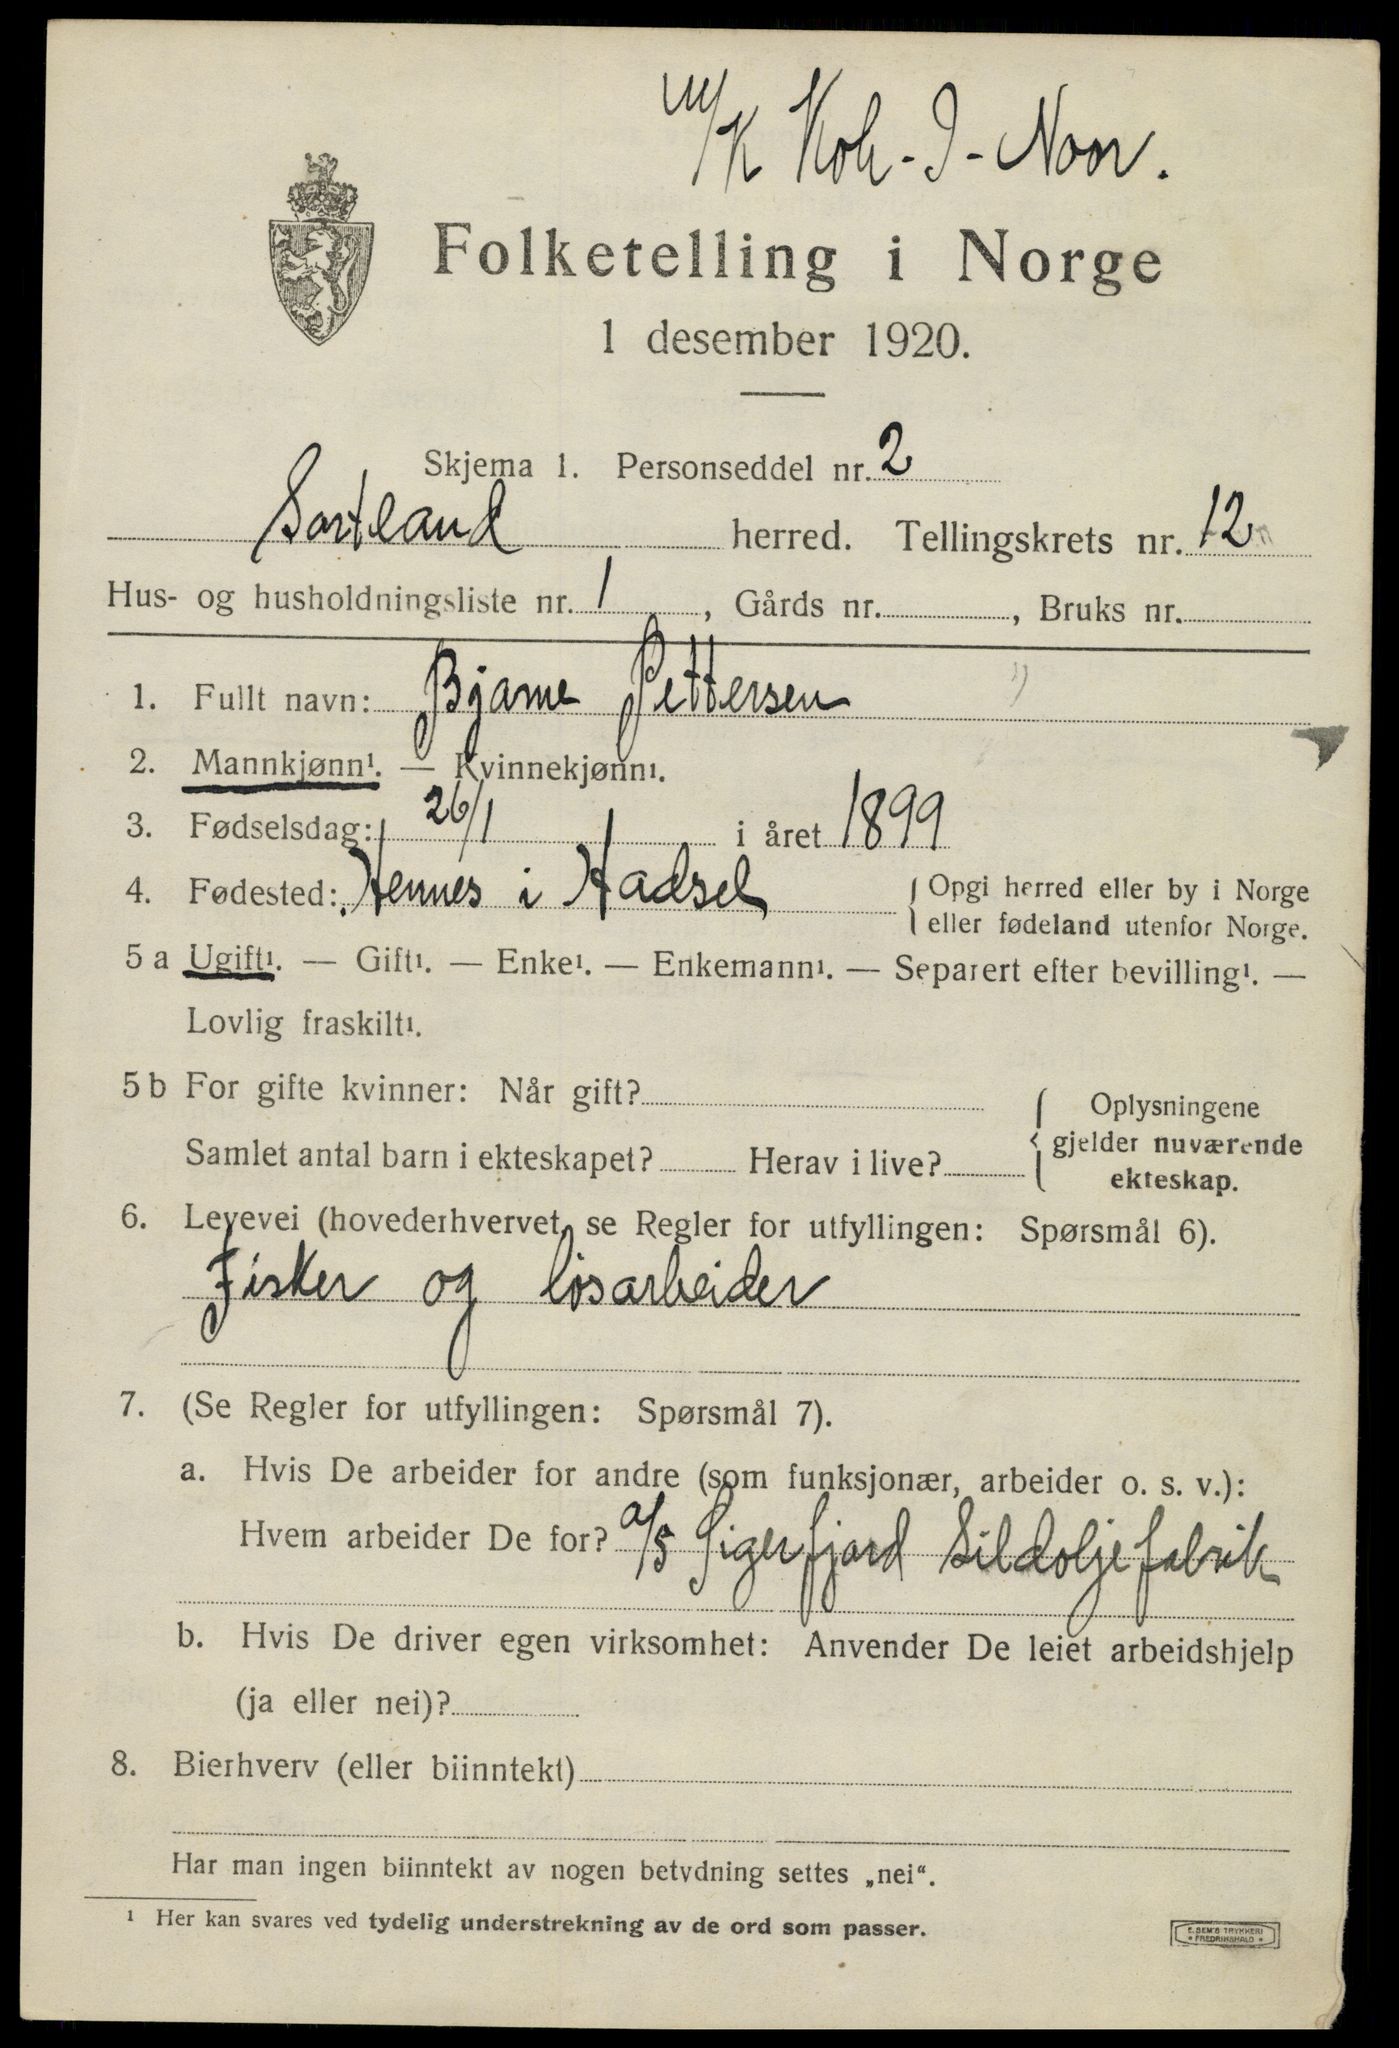 M/K Koh-I-Noor.
Folketelling i Norge
1 desember 1920.
Skjema 1. Personseddel nr. 2
Sortland herred. Tellingskrets nr. 12
Hus- og husholdningsliste nr. 1, Gårds nr., Bruks nr.
1. Fullt navn: Bjarne Pettersen
2. Mannkjønn¹. — Kvinnekjønn¹.
3. Fødselsdag: 26/1 i året 1899
4. Fødested: Hennes i Hadsel { Opgi herred eller by i Norge
eller fødeland utenfor Norge.
5 a Ugift¹. — Gift¹. — Enke¹. — Enkemann¹. — Separert efter bevilling¹. —
Lovlig fraskilt¹.
5 b For gifte kvinner: Når gift? { Oplysningene
gjelder nuværende
ekteskap.
Samlet antal barn i ekteskapet? Herav i live?
6. Levevei (hovederhvervet, se Regler for utfyllingen: Spørsmål 6).
Fisker og løsarbeider
7. (Se Regler for utfyllingen: Spørsmål 7).
a. Hvis De arbeider for andre (som funksjonær, arbeider o. s. v.):
Hvem arbeider De for? a/s Sigerfjord Sildoljefabrik
b. Hvis De driver egen virksomhet: Anvender De leiet arbeidshjelp
(ja eller nei)?
8. Bierhverv (eller biinntekt)
Har man ingen biinntekt av nogen betydning settes „nei“.
¹ Her kan svares ved tydelig understrekning av de ord som passer.
E. SEM'S TRYKKERI
* FREDRIKSHALD *